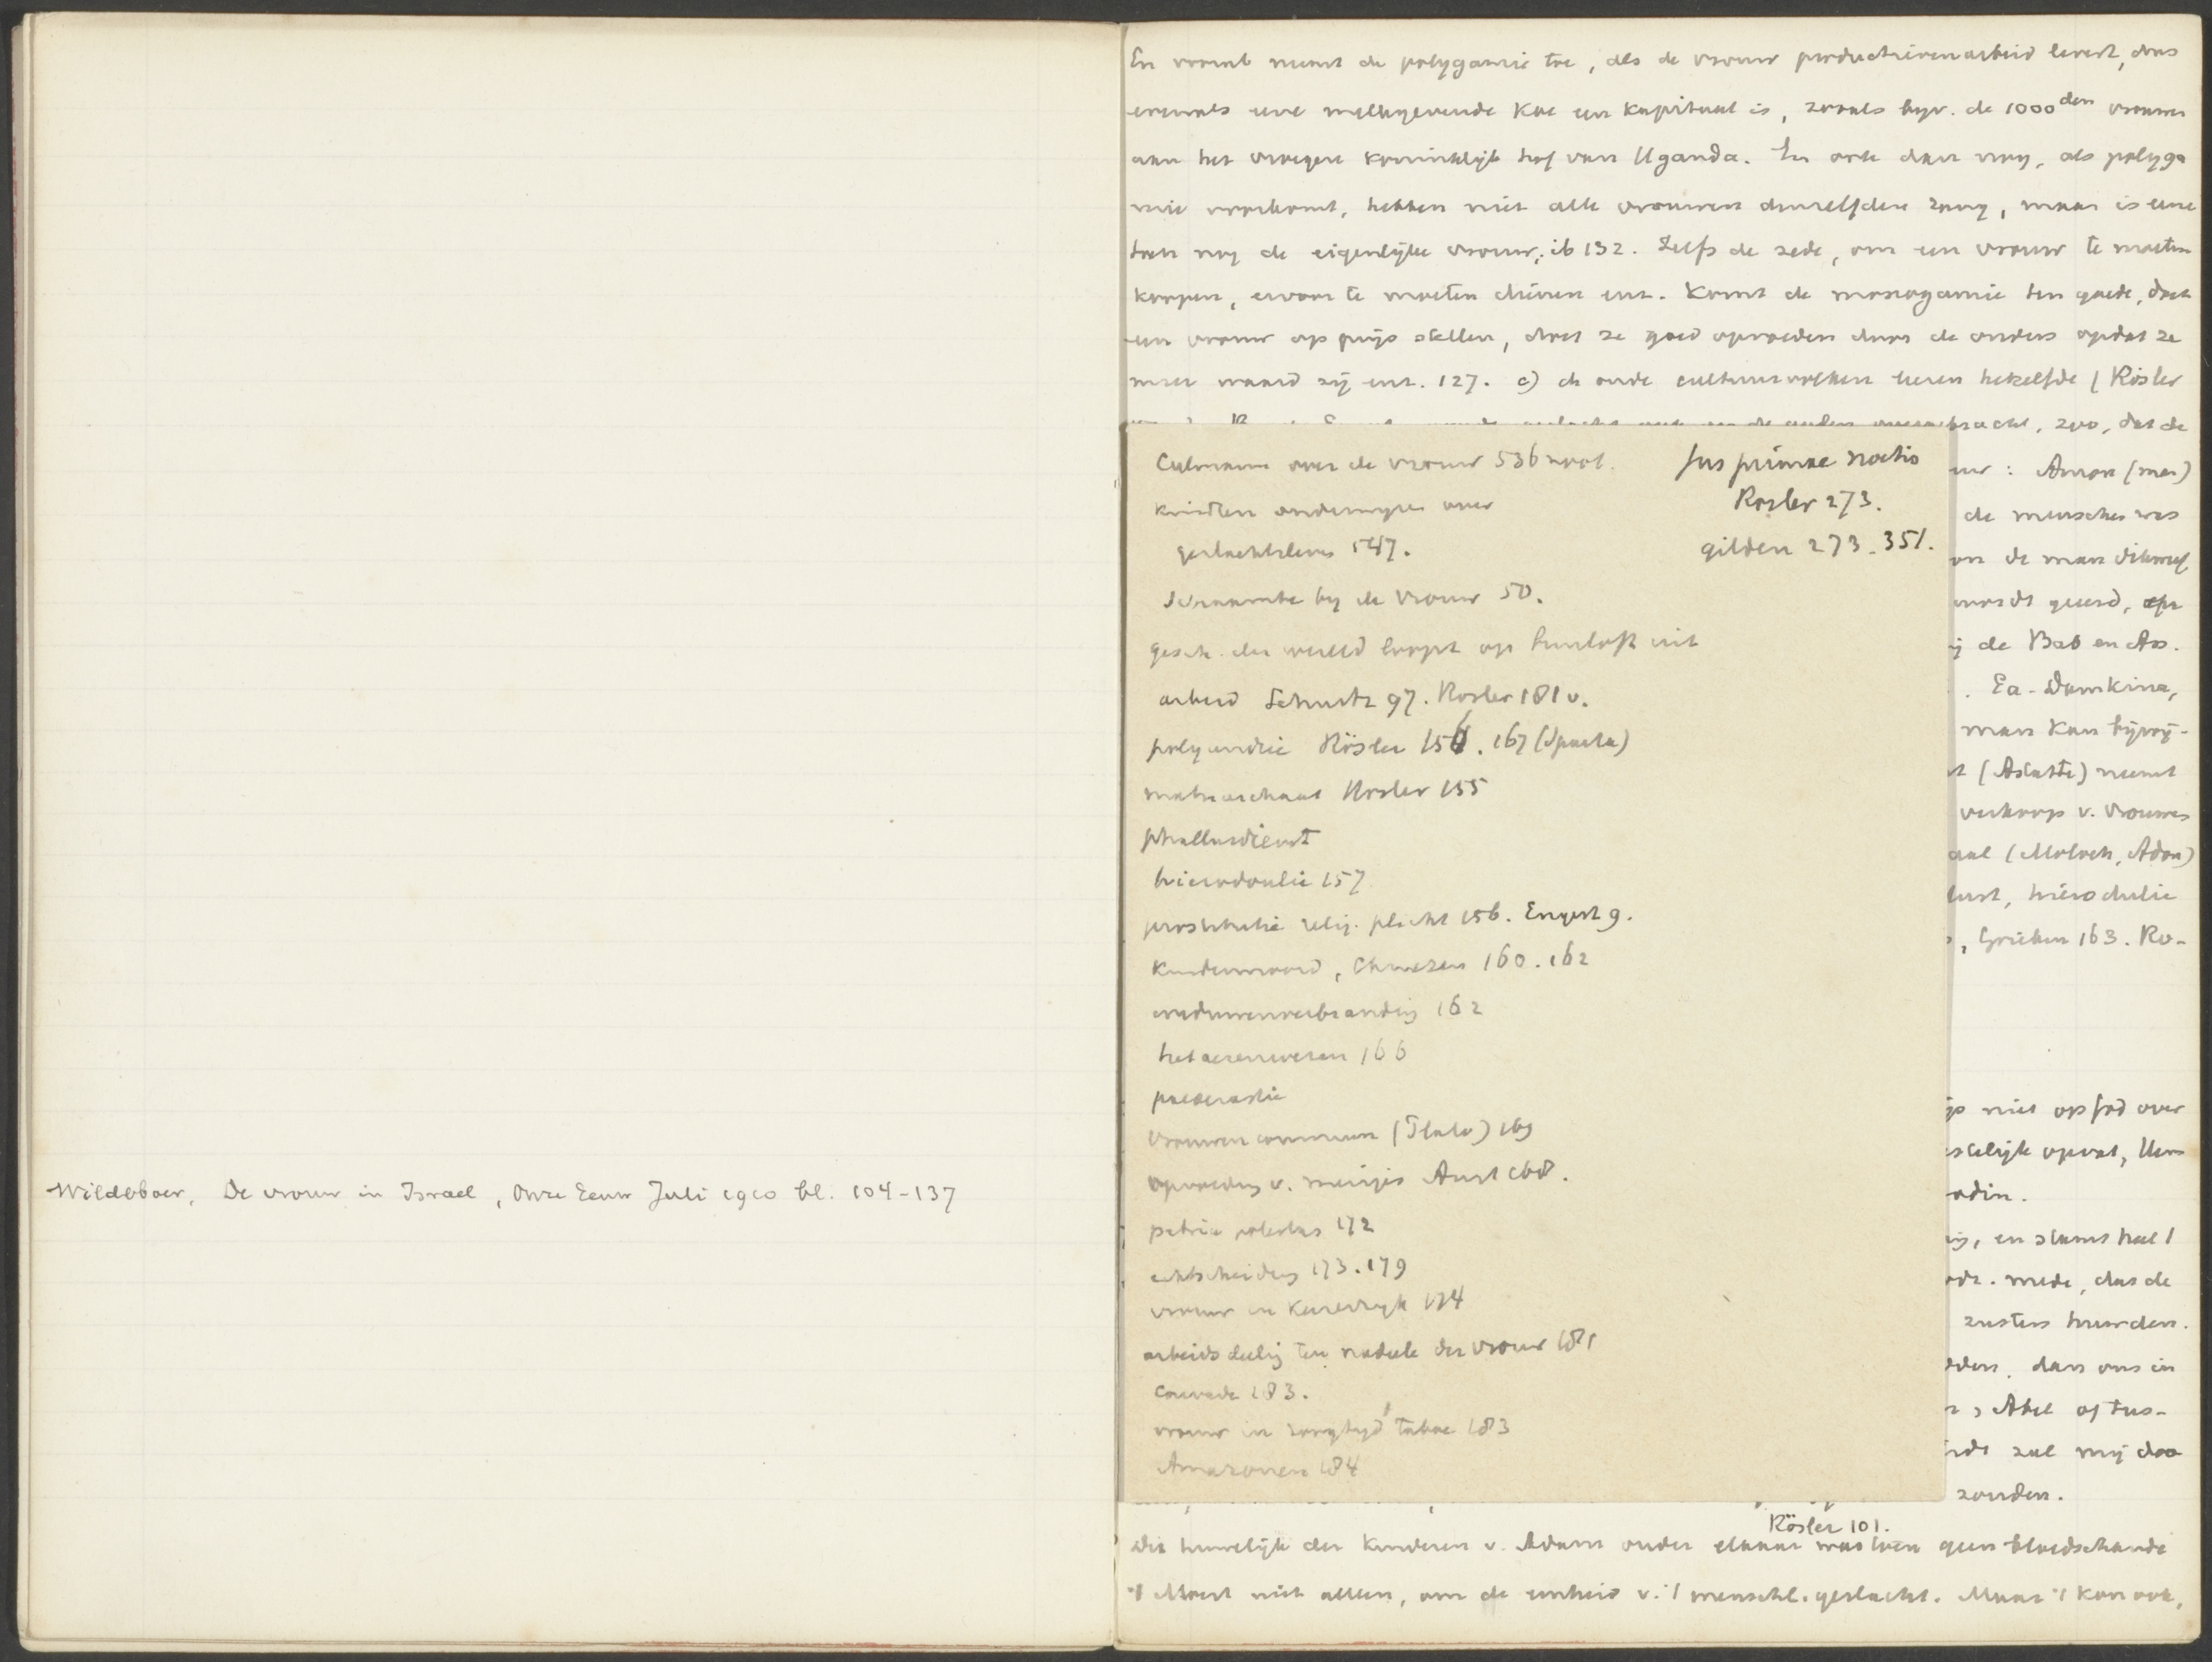 Wildeboer, De vrouw in Israel, Onze Eeuw Juli 1910 bl. 104-137
En vooral neemt de polygamie toe, als de vrouw productieven arbeid levert, dus
evenals eene melkgevende koe een kapitaal is, zooals bijv. de 1000den vrouwen
aan het vroegere koninklijk hof van Uganda. En ook dan nog, als polyga
mie voorkomt, hebben niet alle vrouwen denzelfden rang, maar is eene
toch nog de eigenlijke vrouw, ib 132. Zelfs de zede, om een vrouw te moeten
koopen, ervoor te moeten dienen enz. komt de monogamie ten goede, doet
een vrouw op prijs stellen, doet ze goed opvoeden door de ouders opdat ze
meer waard zij enz. 127. c) de oude cultuurvolken leeren hetzelfde (Rösler
overgebracht, zoo, dat de
Culmann over de vrouw 536 noot.
kinderen onderwijzen over
geslachtsleven 547.
Schaamte bij de vrouw 50.
gesch. der wereld loopt op bruiloft uit
arbeid Schurtz 97. Rösler 181 v.
polyandrie Rösler 156. 167 (Sparta)
matriarchaat Rösler 155
phallusdienst
hierodoulie 157
prostitutie relig. plicht 156. Engert 9.
Kindermoord, Chinezen 160. 162
weduwenverbranding 162
hetaerenwezen 166
paederastie
vrouwen commun (Plato) 169
opvoeding v. meisjes Arist 168.
patria potestas 172
echtscheiding 173. 179
vrouw in Keizerrijk 174
arbeidsdeelig ten nadeele der vrouw 181
Couvade 183.
vrouw in taboe 183
Amazonen 184
Jus primae noctis
Rösler 273.
gilden 273. 351.
: Amon (man)
de menschen was
de man
wordt geëerd,
de Bab en Ass.
. Ea-Damkina,
man kan bijwij-
(Astarte) neemt
verkoop v. vrouwen
(Moloch, Adon)
lust, hierodulie
, Grieken 163. Ro-
niet op God over
opvat,
odin.
, en stamt heel 1
. mede, dus de
zusters huwden.
dan ons in
, Abel of tus-
zal mij doo
zonden.
Rösler 101.
Dit huwelijk der kinderen v. Adam onder elkaar was toen geen bloedschande
't Moest niet alleen, om de eenheid v. 't menschl. geslacht. Maar 't kon ook,